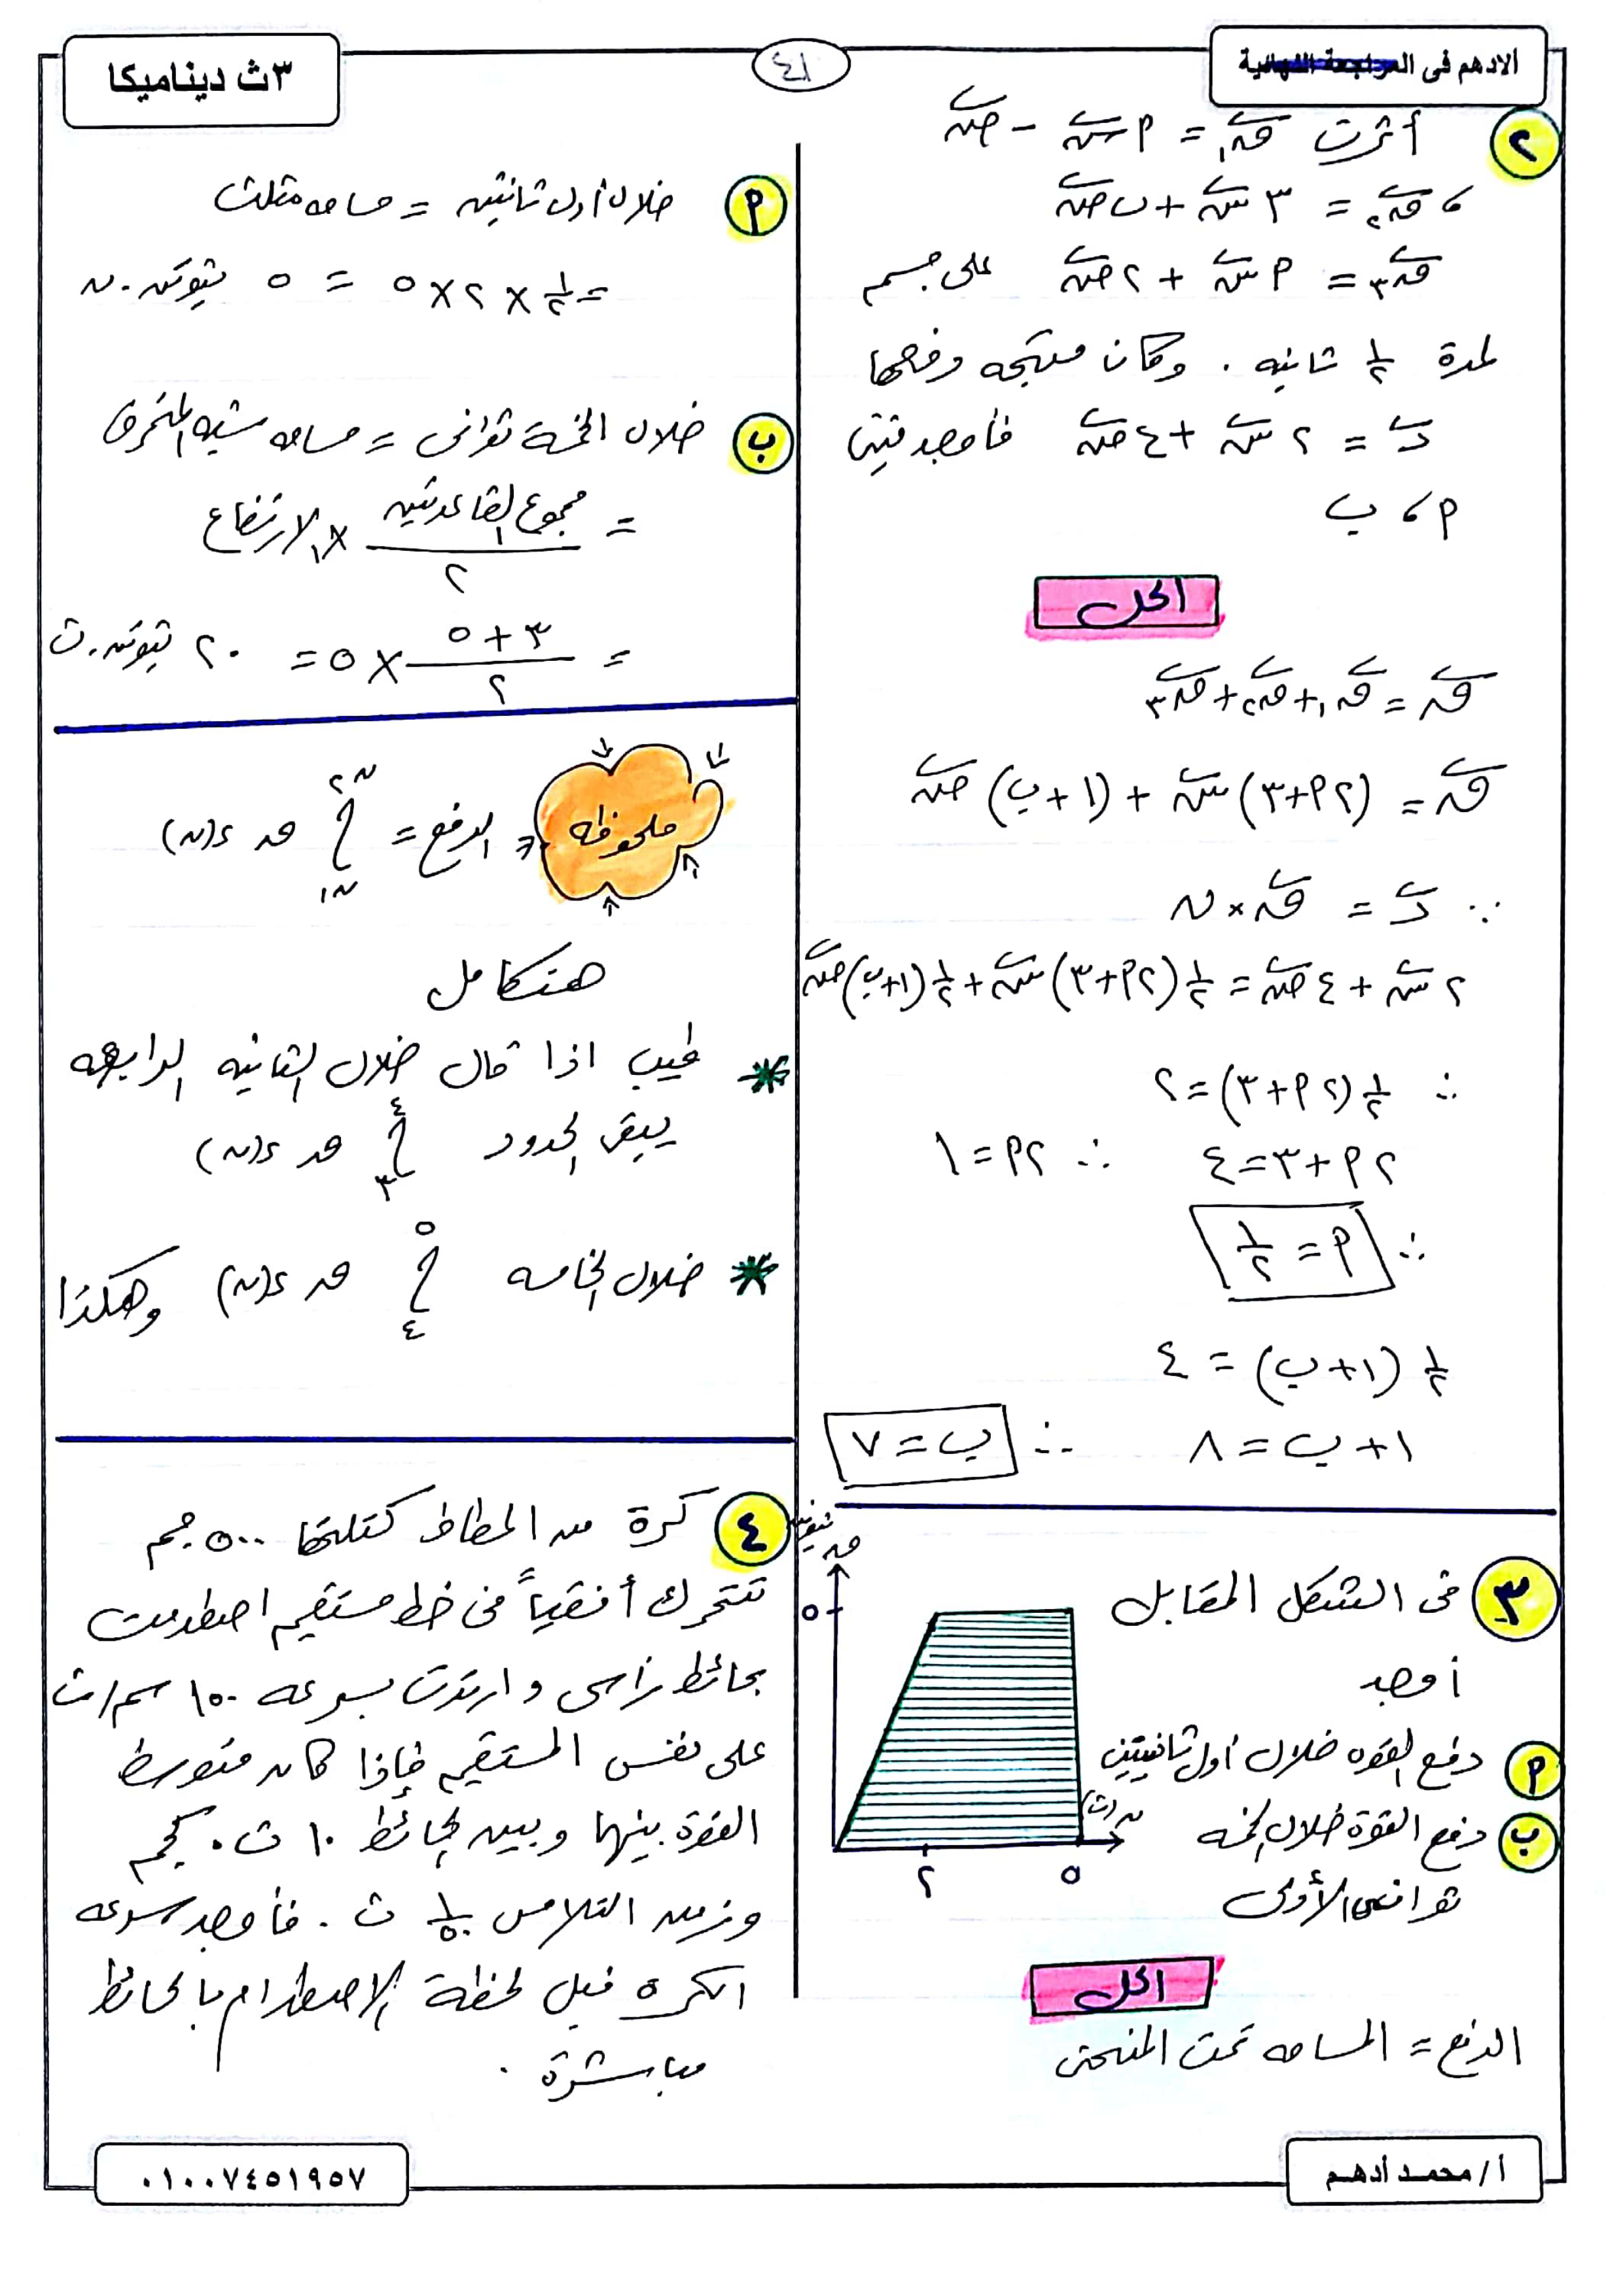 الادهم فى المراجعة النهائية
٤١
٣ث ديناميكا
٢ أثرت ق١ = ٩ س - ص
، ق٢ = ٣ س + ب ص
ق٣ = ٩ س + ٢ ص على جسم
لمدة ١/٢ ثانيه . وكان متجه دفعها
د = ٢ س + ٤ ص فأوجد قيمتى
٩ ، ب
الحل
ق = ق١ + ق٢ + ق٣
ق = (٢٩+٣) س + (١+ب) ص
∵ د = ق × ن
٢ س + ٤ ص = ١/٢ (٢٩+٣) س + ١/٢ (١+ب) ص
∴ ١/٢ (٢٩+٣) = ٢
٢٩+٣=٤ ∴ ٢٩=١
∴ ٩ = ١/٢
١/٢ (١+ب) = ٤
١+ب = ٨ ∴ ب = ٧
٣ فى الشكل المقابل
أوجد
٩ دفع القوه خلال أول ثانيتين
ب دفع القوة خلال الخمسه
ثوانى الأولى
ق نيوتن
٥
٢ ٥
ن (ث)
الحل
الدفع = المساحه تحت المنحنى
٩ خلال أول ثانيتين = مساحه مثلث
= ١/٢ × ٢ × ٥ = ٥ نيوتن . ن
ب خلال الخمسة ثوانى = مساحه شبه المنحرف
= مجموع القاعدتين / ٢ × الارتفاع
= ٣ + ٥ / ٢ × ٥ = ٢٠ نيوتن . ث
ملحوظه الدفع = ∫ ن١ ن٢ ق د(ن)
هتكامل
* طيب اذا قال خلال الثانيه الرابعه
يبقى الحدود ∫ ٣ ٤ ق د(ن)
* خلال الخامسه ∫ ٤ ٥ ق د(ن) وهكذا
٤ كرة من المطاط كتلتها ٥٠٠ جم
تتحرك أفقياً فى خط مستقيم اصطدمت
بحائط رأسى وارتدت بسرعه ١٥٠ سم/ث
على نفس المستقيم فإذا كان متوسط
القوة بينها وبين الحائط ١٠ ث . كجم
وزمن التلامس ١/٥٠ ث . فأوجد سرعه
الكره قبل لحظة الاصطدام بالحائط
مباشرة .
أ / محمد أدهم
٠١٠٠٧٤٥١٩٥٧